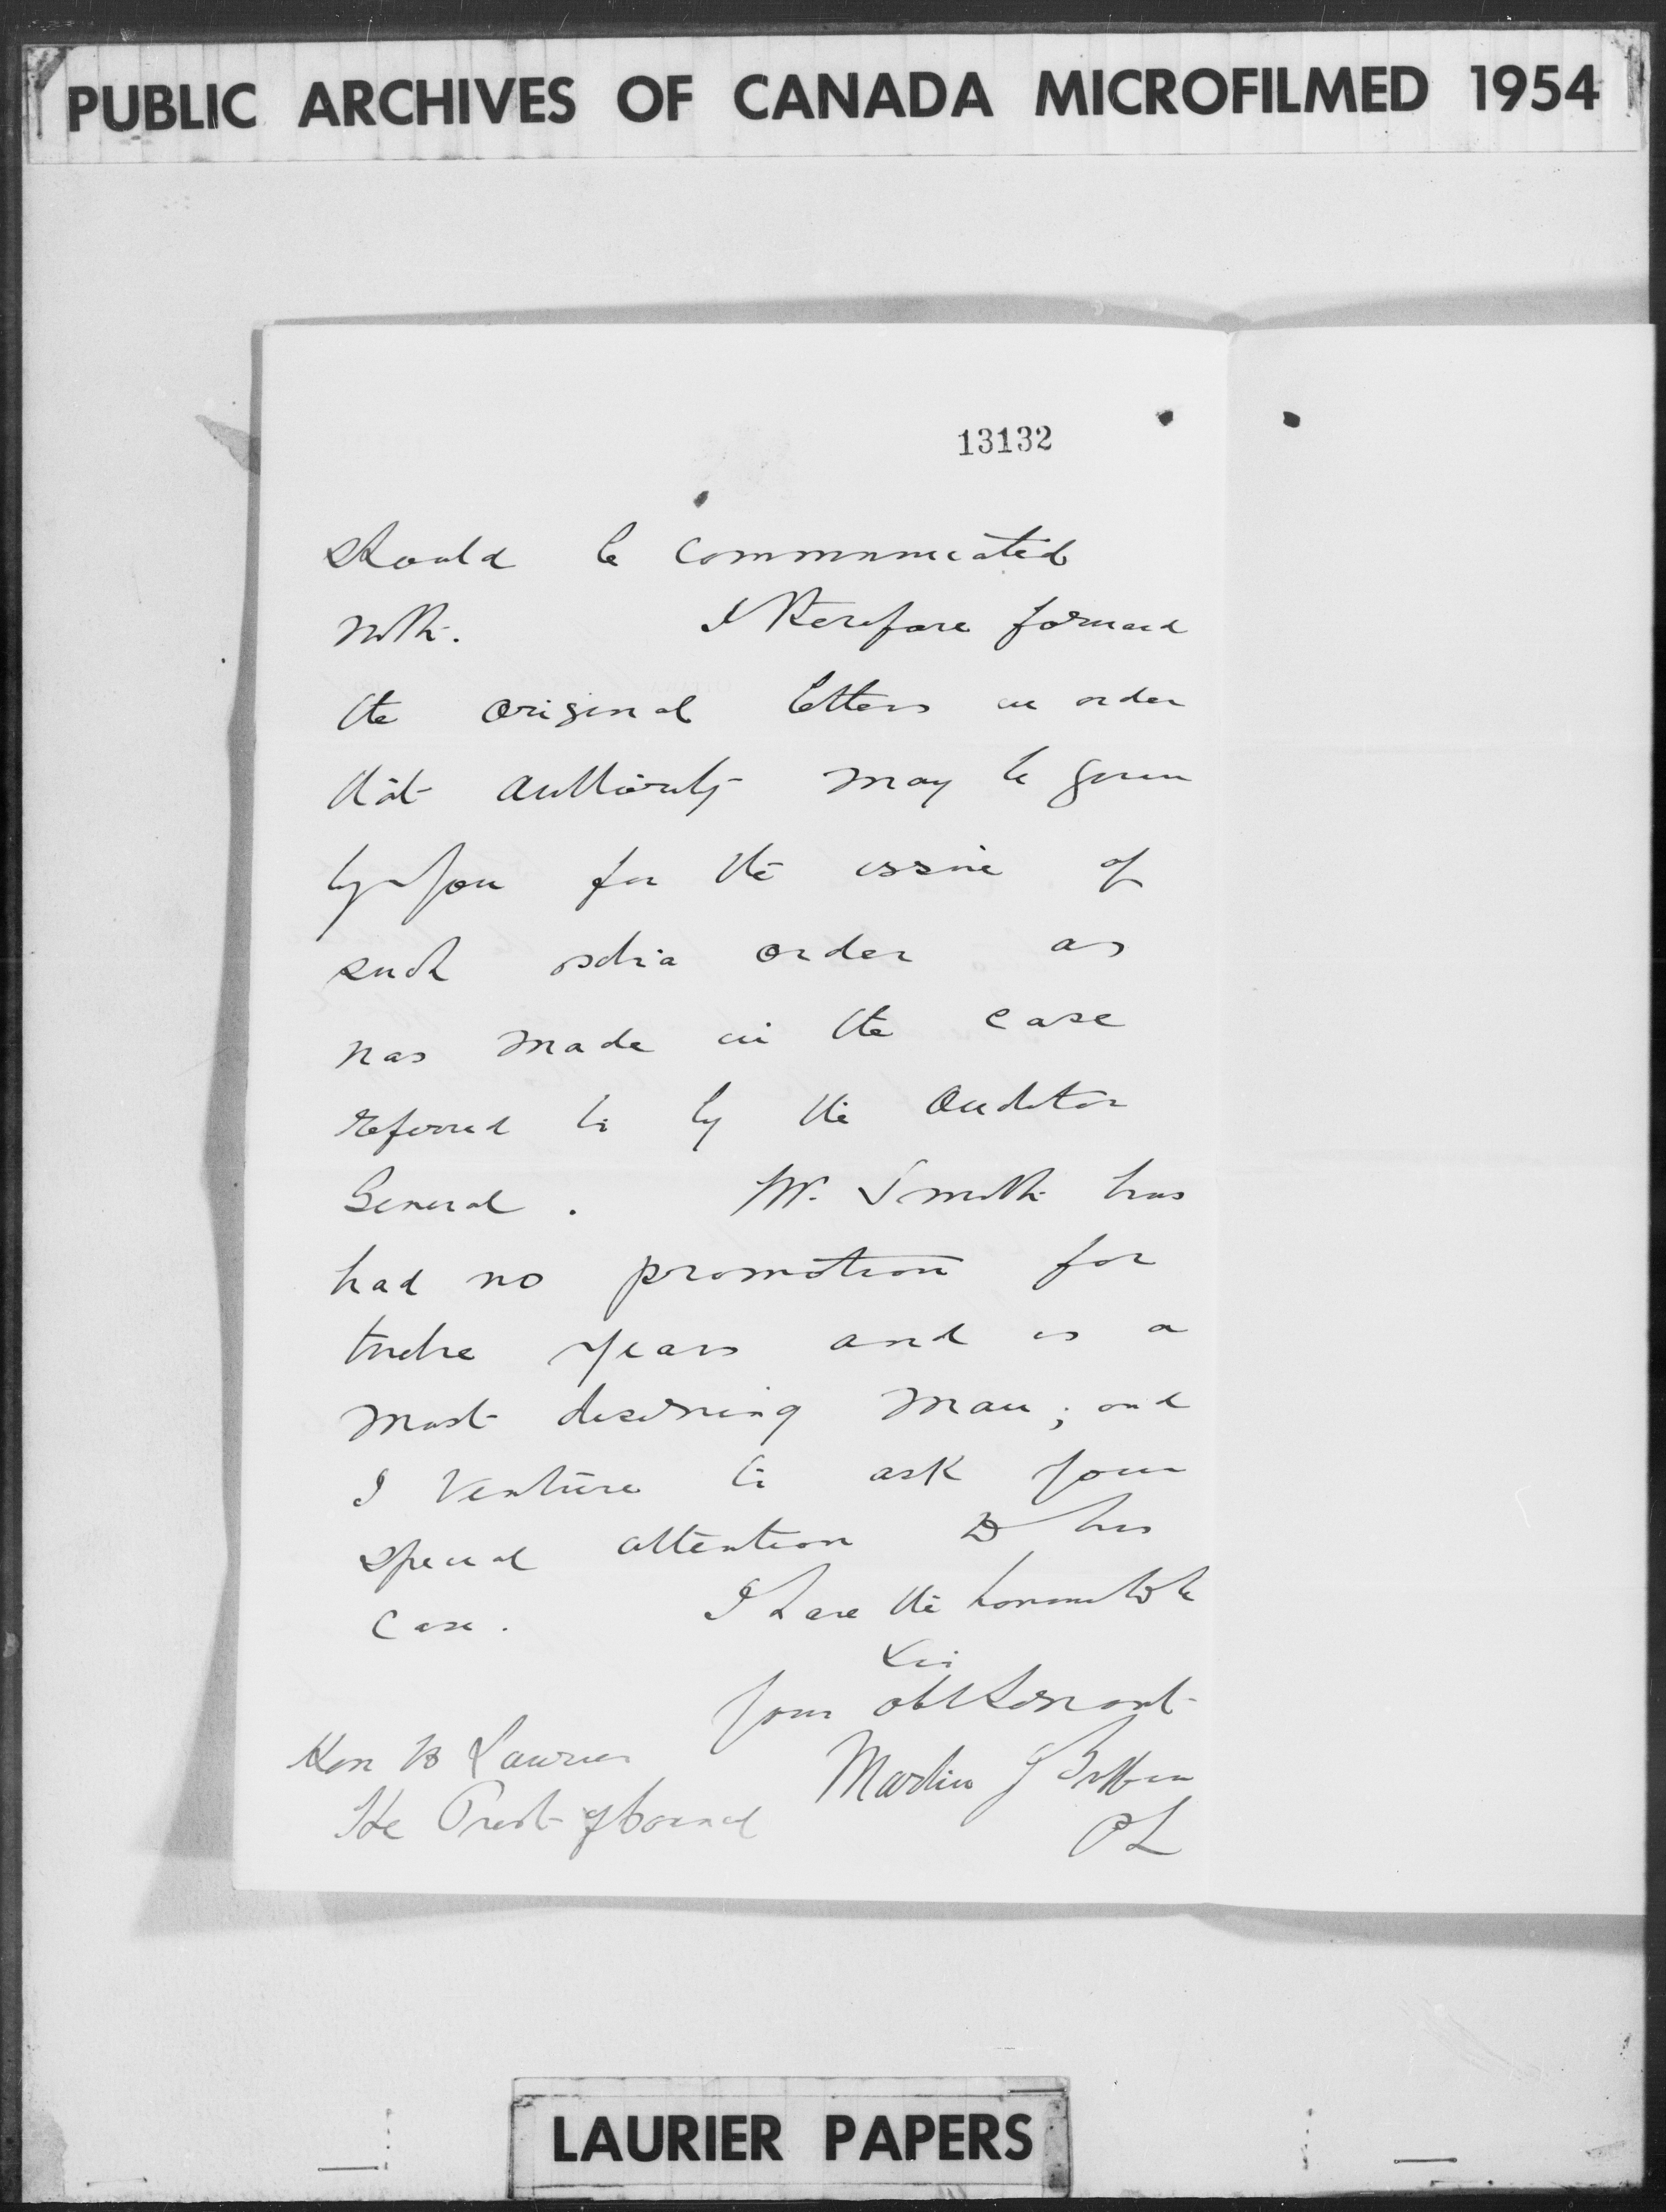 PUBLIC ARCHIVES OF CANADA MICROFILMED 1954
13132
should be communicated
with. I therefore forward
the original letters in order
that authority may be given
by you for the issue of
such order as
was made in the case
referred to by the Auditor
General. Mr. Smith has
had no promotion for
twelve years and is a
most deserving man; and
I venture to ask your
special attention to his
case. I have the honour to be
Sir
Your obt servant
Hon W Laurier
Martin J Griffin
The Prest of Council
PL
LAURIER PAPERS